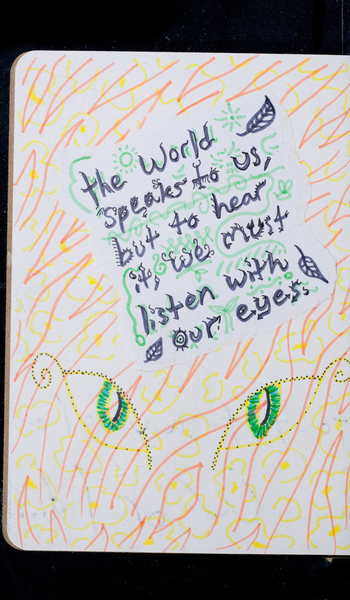 the world
speaks to us,
but to hear
it, we must
listen with
our eyes.